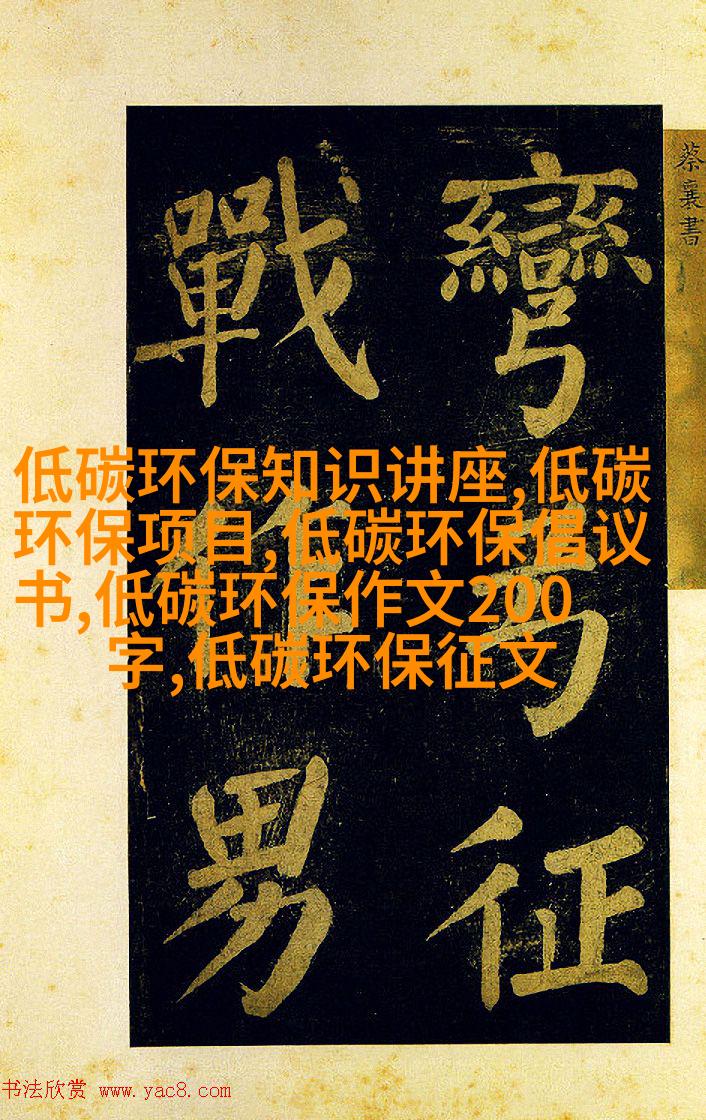 蔡襄書
彎弓征
戰作男
低碳环保知识讲座,低碳
环保项目,低碳环保倡议
书,低碳环保作文200
字,低碳环保征文
书法欣赏 www.yac8.com